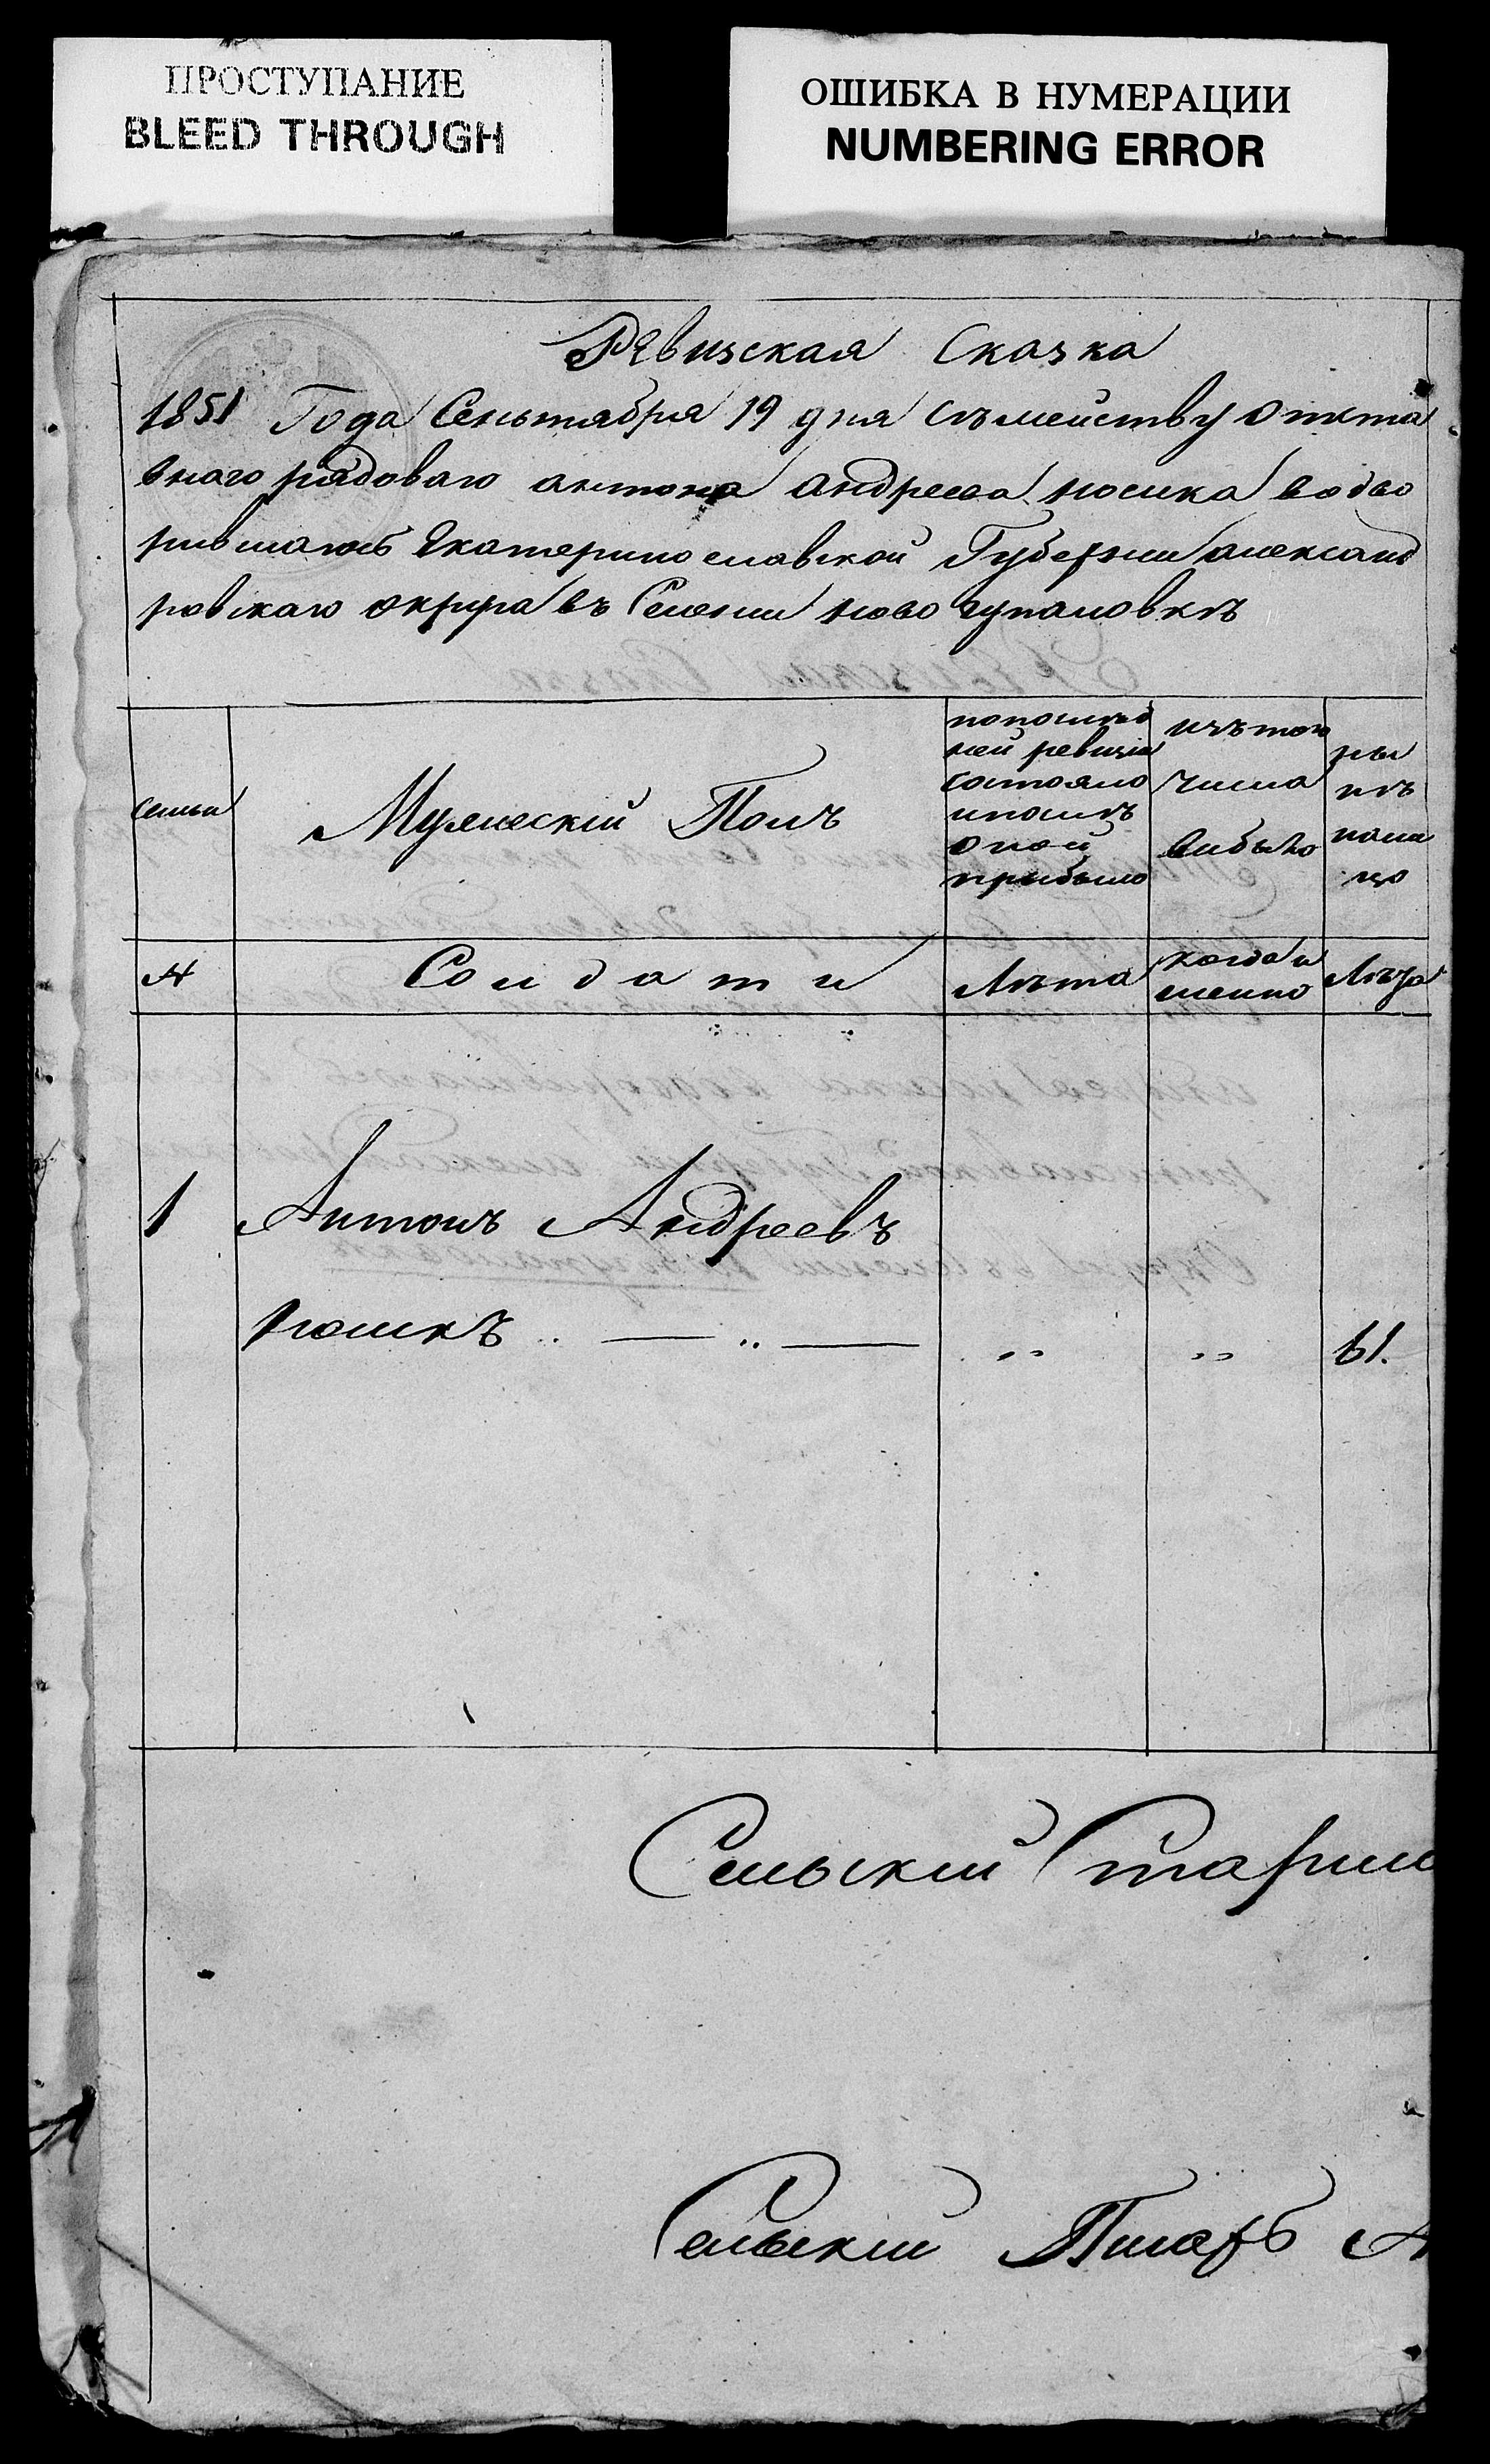 ПРОСТУПАНИЕ
BLEED THROUGH
ОШИБКА В НУМЕРАЦИИ
NUMBERING ERROR
Рѣвизская Сказка
1851 Года Сеньтября 19 дня Съмейству отста
внаго рядоваго антона андреева носика водво
рившагось Екатеринославской Губернии александ
ровскаго округа въ Селении ново гупаловкѣ
семьи
Мужескій Полъ
попослѣд
ней ревизіи
состояло
ипослѣ
оной
прибыло
изътого
числа
выбыло
ны
нѣ
нали
цо
№
Солдаты
Лѣта
когда и
менно
Лѣта
1 Антонъ Андреевъ
Носикъ „ „ „ „ 61.
Сельскій Старши
Сельскій Писарь А